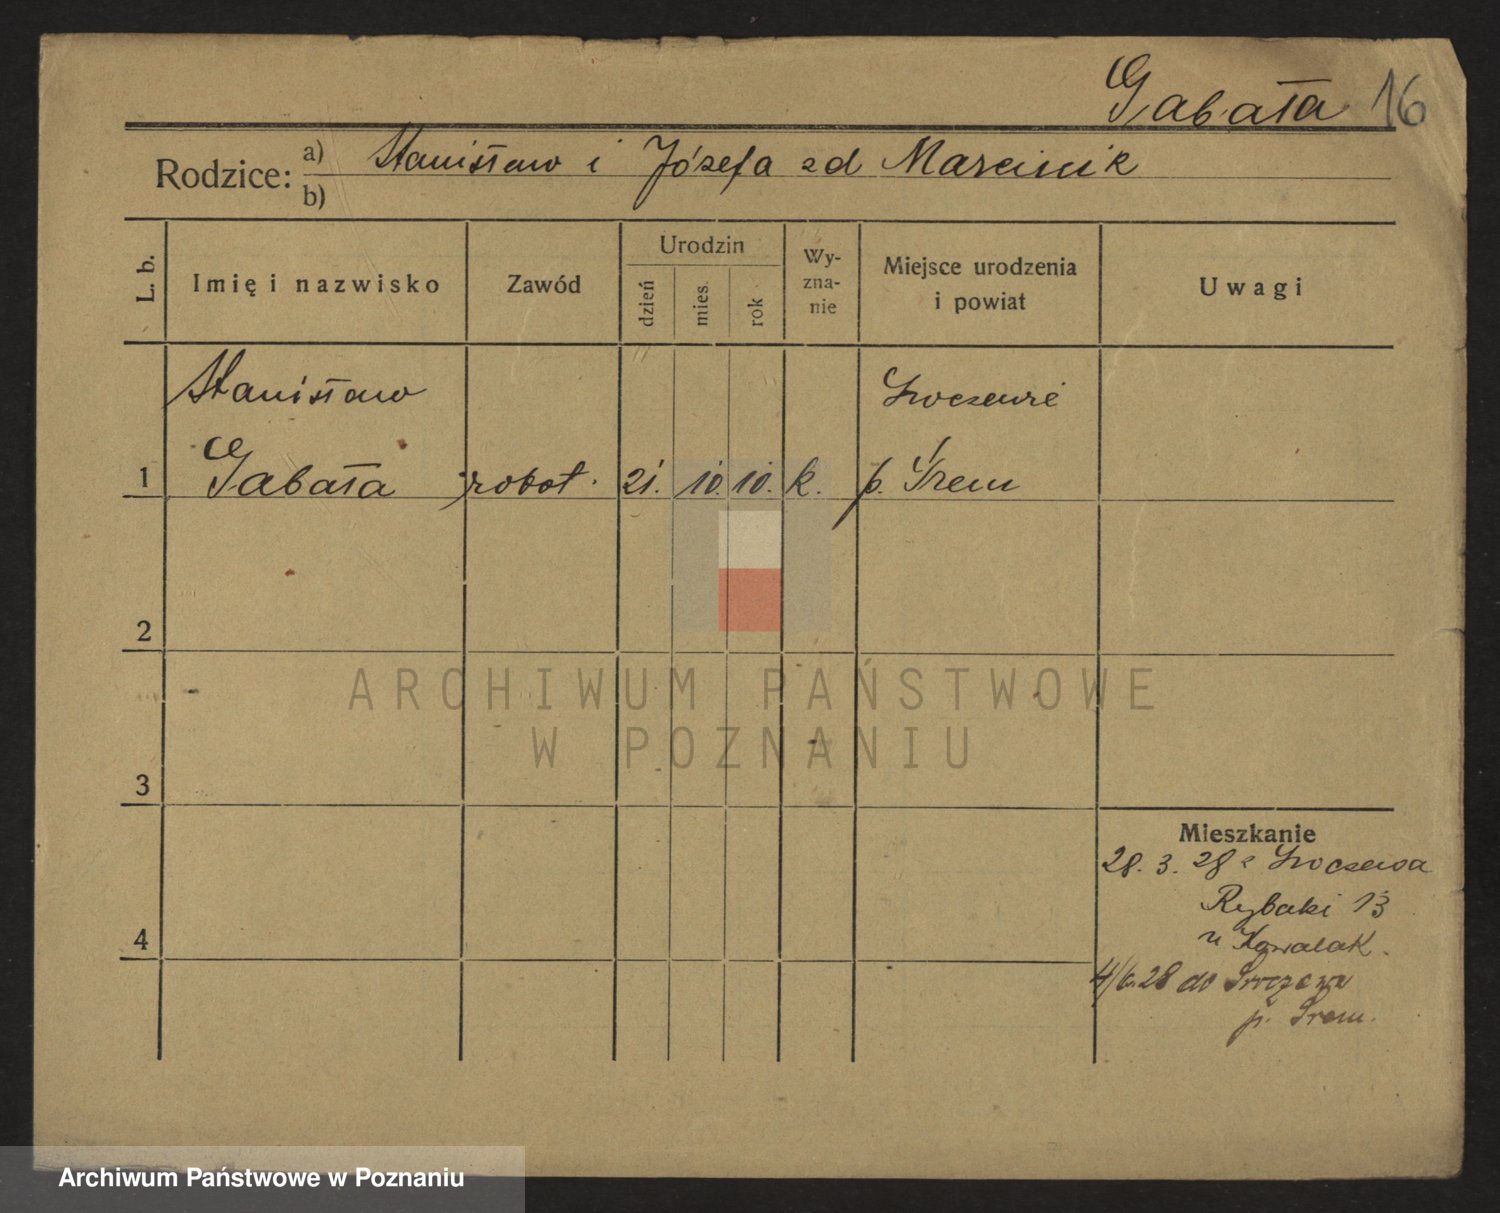 Gabała 16
Rodzice: a) Stanisław i Józefa zd Marcinik
b)
L. b.
Imię i nazwisko
Zawód
Urodzin
dzień
mies.
rok
Wy-
zna-
nie
Miejsce urodzenia
i powiat
Uwagi
Stanisław
1 Gabała robot. 21. 10. 10. k.
p. Śrem
2
3
4
Mieszkanie
28. 3. 28 z
Rybaki 13
u Kowalak.
4/6.28 do
p. Śrem.
ARCHIWUM PAŃSTWOWE
W POZNANIU
Archiwum Państwowe w Poznaniu